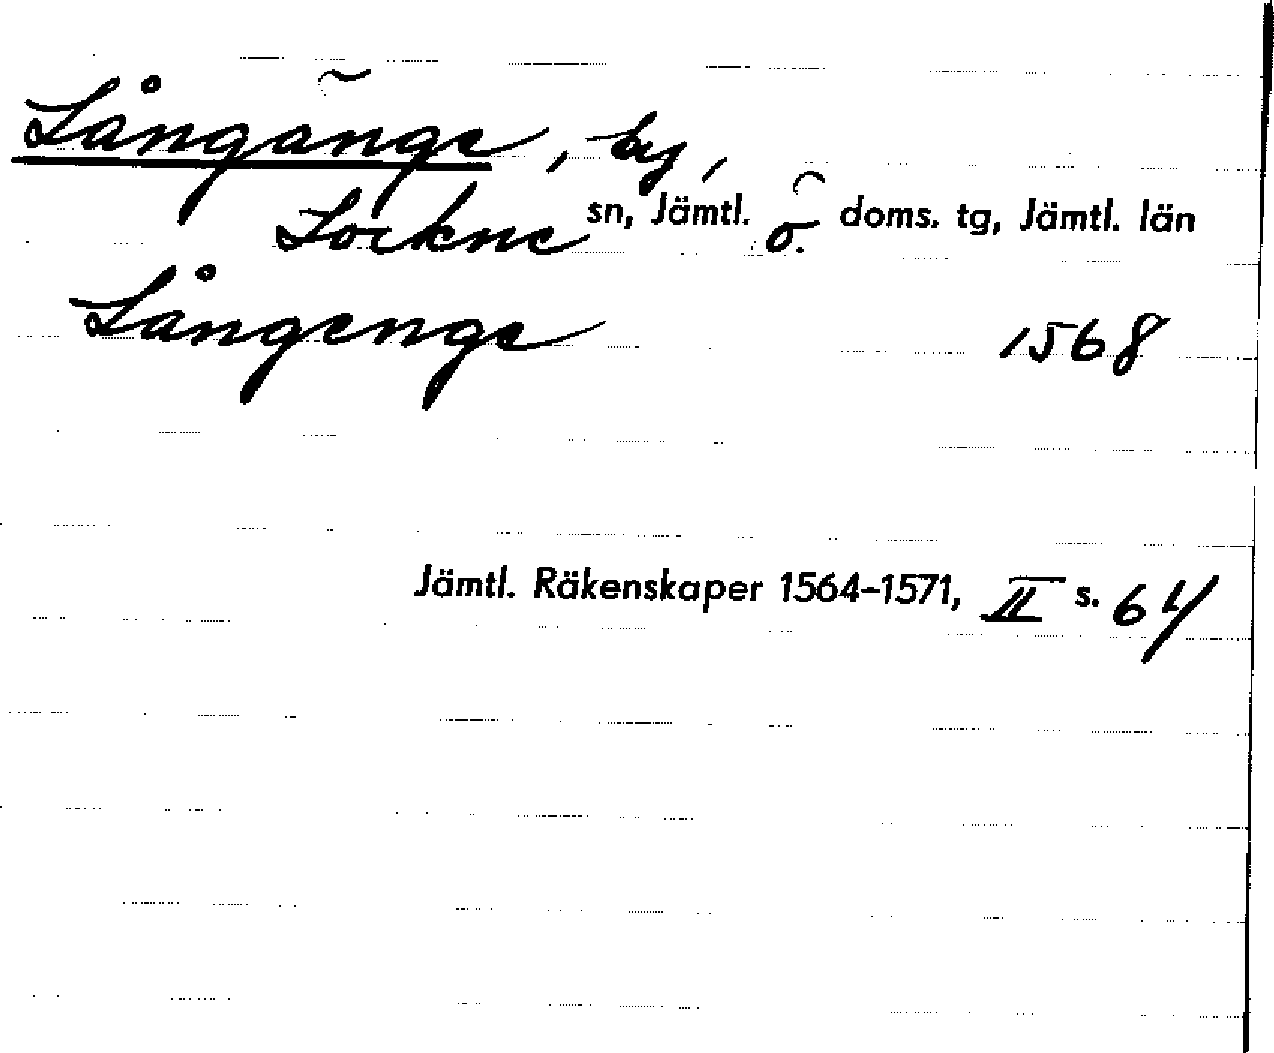 Långänge, by,
Lockne sn, Jämtl. ö. doms. tg, Jämtl. län
Långenge 1568
Jämtl. Räkenskaper 1564-1571, II s. 64